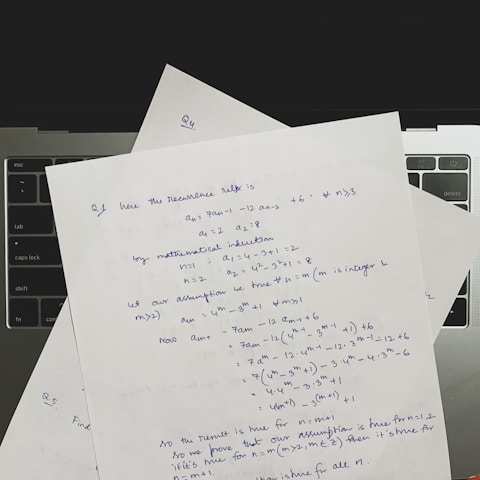 Q4.
esc
tab
caps lock
shift
fn
control
delete
Q1 here the recurrence reln is
aₙ = 7aₙ₋₁ - 12 aₙ₋₂ + 6 . ∀ n≥3
a₁ = 2 a₂ = 8
by mathematical induction
n=1 ; a₁ = 4 - 3 + 1 = 2
n=2 a₂ = 4² - 3² + 1 = 8
let our assumption be true ∀ n = m (m is integer &
m>2) aₘ = 4ᵐ - 3ᵐ + 1 ∀ m≥1
Now aₘ₊₁ = 7aₘ - 12 aₘ₋₁ + 6
= 7aₘ - 12 (4ᵐ⁻¹ - 3ᵐ⁻¹ + 1) + 6
= 7aᵐ - 12.4ᵐ⁻¹ - 12.3ᵐ⁻¹ - 12 + 6
= 7(4ᵐ - 3ᵐ + 1) - 3.4ᵐ - 4.3ᵐ - 6
= 4.4ᵐ - 3.3ᵐ + 1
= 4(m+1) - 3(m+1) + 1
so the result is true for n = m+1
so we prove that our assumption is true for n=1,2
if it's true for n = m (m>2, m ∈ z) then it's true for
n = m+1.
tion is true for all n.
Q5.
Find